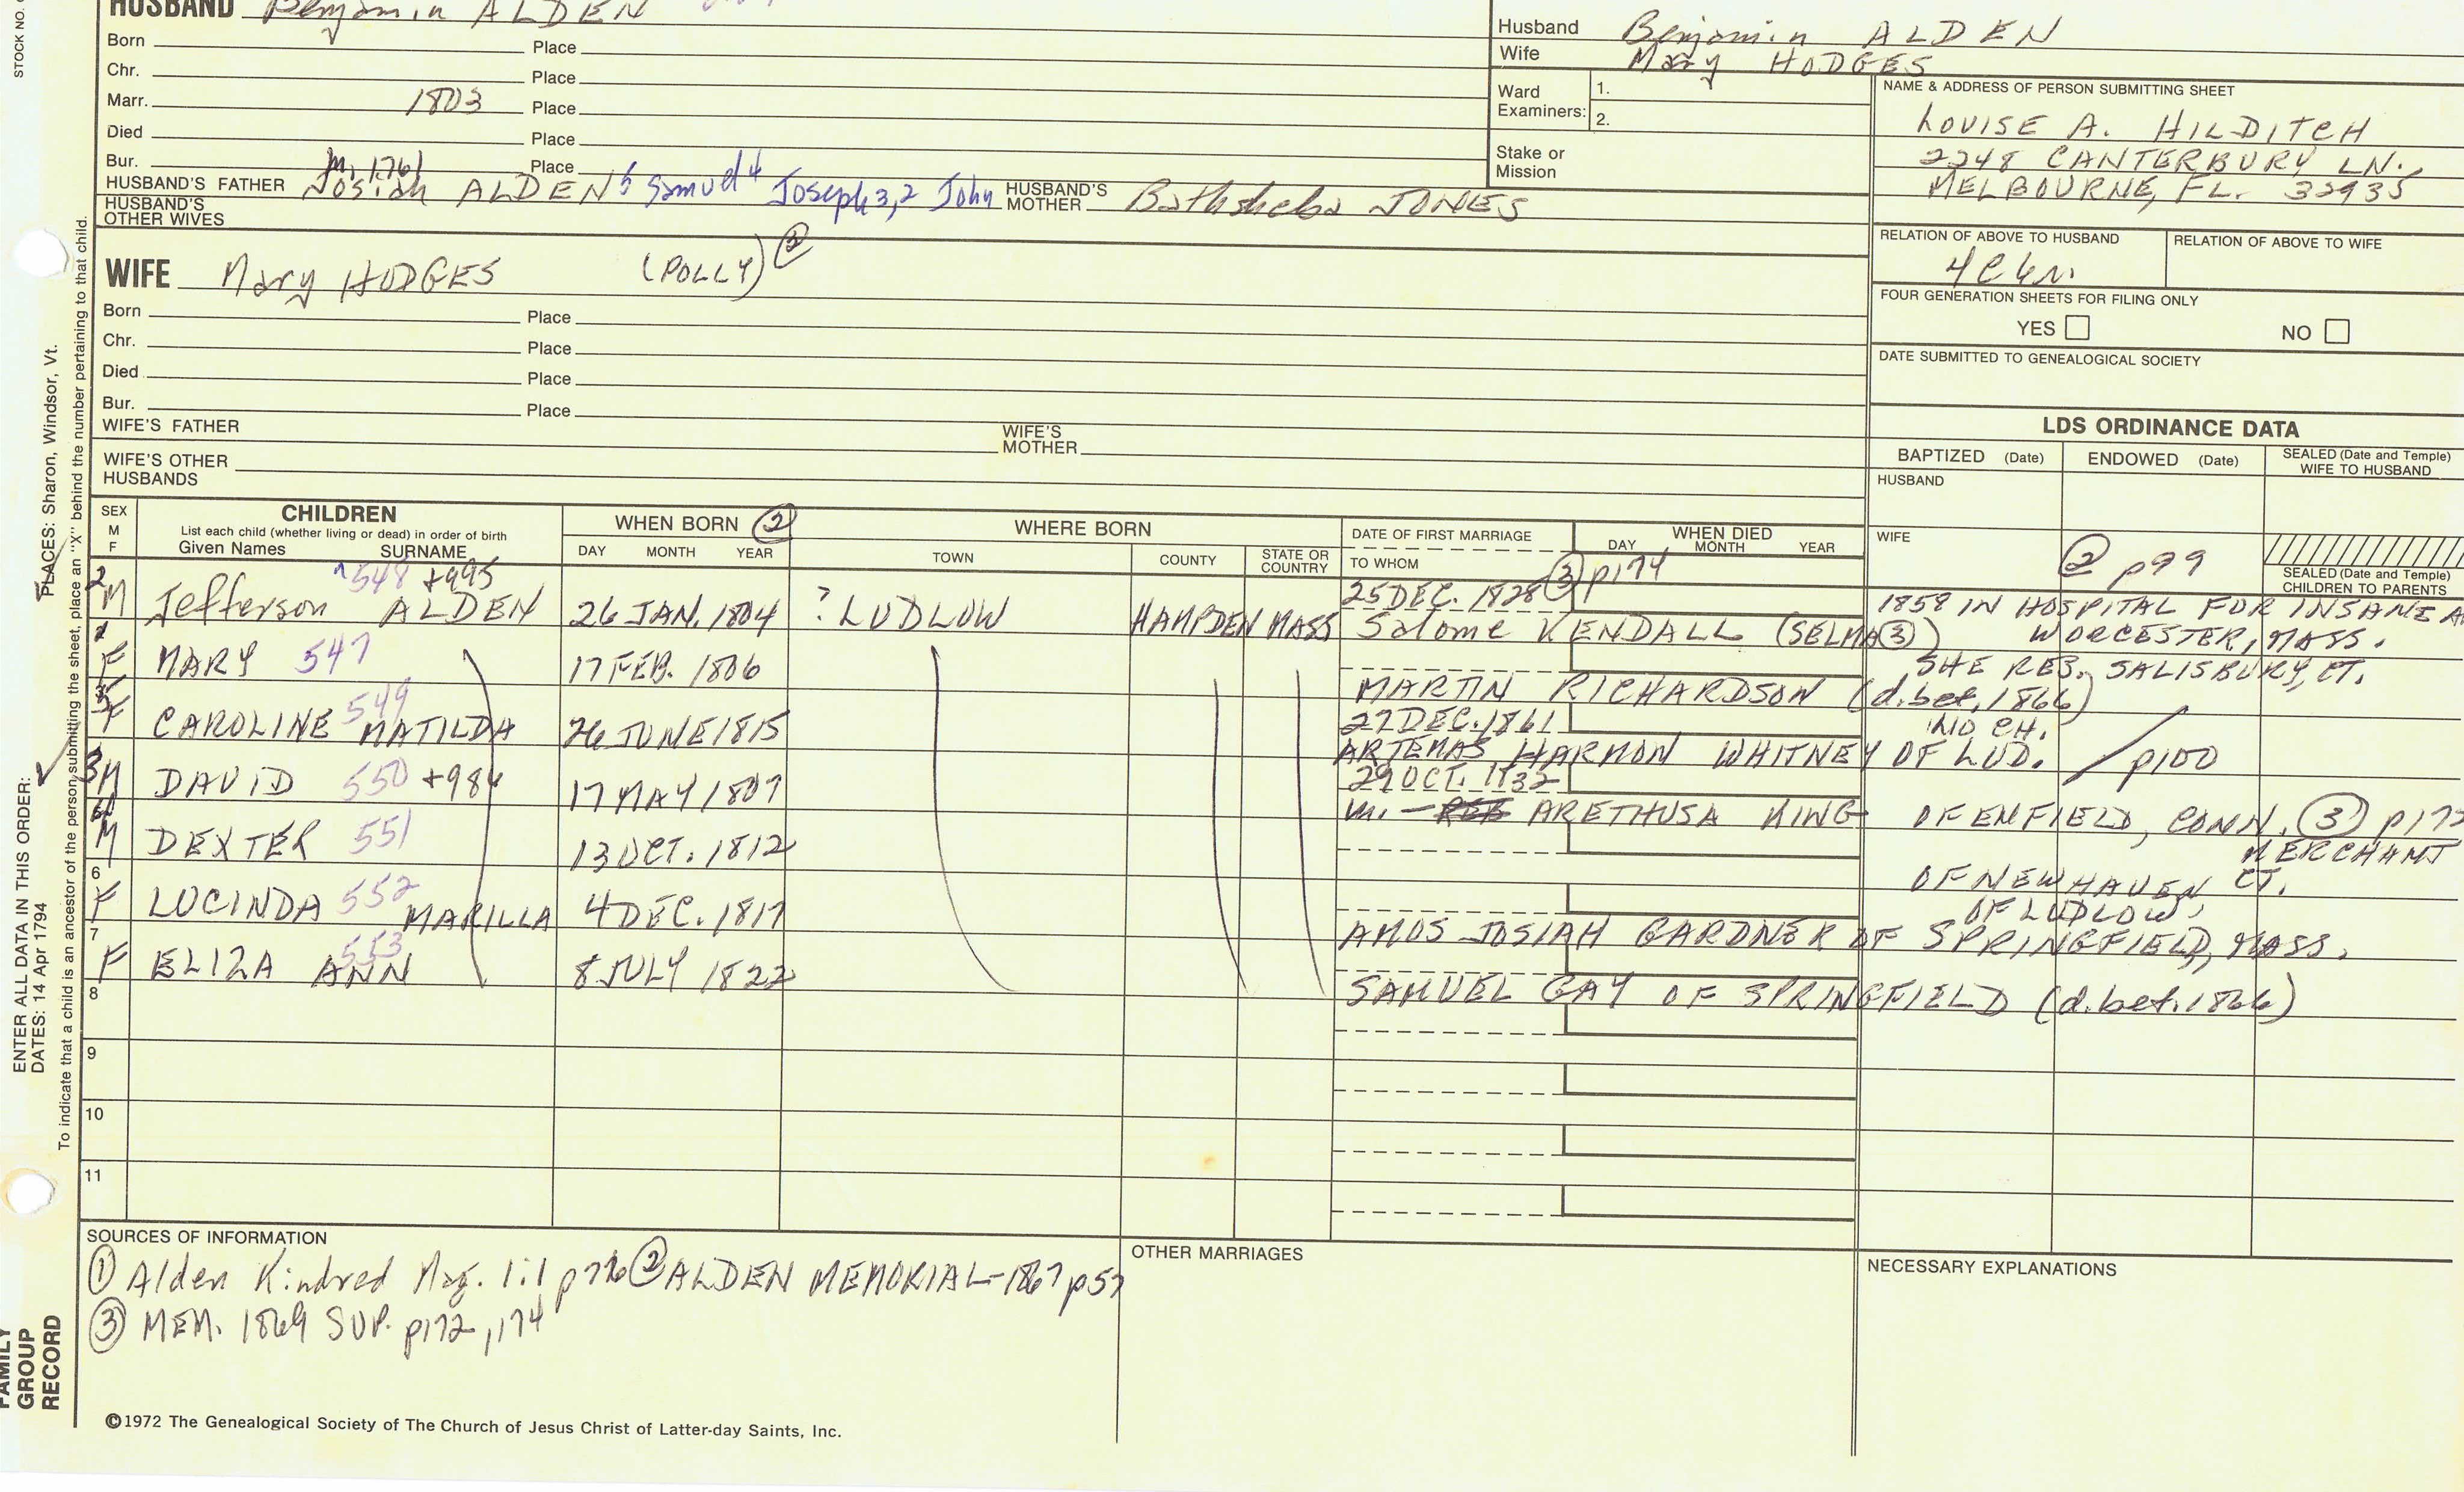 STOCK NO.
HUSBAND Benjamin ALDEN
Born Place
Chr. Place
Marr. 1803 Place
Died Place
Bur. Place
m. 1761
HUSBAND'S FATHER Josiah ALDEN 5 Samuel 4 Joseph 3,2 John HUSBAND'S MOTHER Bathsheba JONES
HUSBAND'S OTHER WIVES
Husband Benjamin ALDEN
Wife Mary HODGES
Ward Examiners: 1.
2.
Stake or Mission
NAME & ADDRESS OF PERSON SUBMITTING SHEET
LOUISE A. HILDITCH
2248 CANTERBURY LN.
MELBOURNE, FL. 32935
RELATION OF ABOVE TO HUSBAND RELATION OF ABOVE TO WIFE
4C
FOUR GENERATION SHEETS FOR FILING ONLY
YES NO
DATE SUBMITTED TO GENEALOGICAL SOCIETY
WIFE Mary HODGES (POLLY)
Born Place
Chr. Place
Died Place
Bur. Place
WIFE'S FATHER WIFE'S MOTHER
WIFE'S OTHER HUSBANDS
LDS ORDINANCE DATA
BAPTIZED (Date) ENDOWED (Date) SEALED (Date and Temple) WIFE TO HUSBAND
HUSBAND
WIFE ② p99
SEALED (Date and Temple) CHILDREN TO PARENTS
SEX M F
CHILDREN
List each child (whether living or dead) in order of birth
Given Names SURNAME
WHEN BORN ②
DAY MONTH YEAR
WHERE BORN
TOWN COUNTY STATE OR COUNTRY
DATE OF FIRST MARRIAGE
TO WHOM
WHEN DIED
DAY MONTH YEAR
③ p174
2 M Jefferson 548 +995 ALDEN 26 JAN. 1804 ? LUDLOW HAMPDEN MASS 25 DEC. 1828 Salome KENDALL (SELMA③) 1858 IN HOSPITAL FOR INSANE A
WORCESTER, MASS.
SHE RES. SALISBURY, CT.
F MARY 547 17 FEB. 1806 MARTIN RICHARDSON (d. bet. 1866)
NO CH.
F CAROLINE 549 MATILDA 26 JUNE 1815 27 DEC. 1861 ARTEMAS HARMON WHITNEY OF LUD. p100
3 M DAVID 550 +984 17 MAY 1807 29 OCT. 1832 m. - RES ARETHUSA KING OF ENFIELD, CONN. ③
MERCHANT
M DEXTER 551 13 OCT. 1812 OF NEW HAVEN CT.
OF LUDLOW,
6 F LUCINDA 552 MARILLA 4 DEC. 1817 AMOS JOSIAH GARDNER OF SPRINGFIELD, MASS.
7 F ELIZA 553 ANN 8 JULY 1822 SAMUEL GAY OF SPRINGFIELD (d. bet. 1866)
8
9
10
11
SOURCES OF INFORMATION
① Alden Kindred Mag. 1:1 ② ALDEN MEMORIAL-1867 p57
③ MEM. 1869 SUP. p172, 174
OTHER MARRIAGES
NECESSARY EXPLANATIONS
©1972 The Genealogical Society of The Church of Jesus Christ of Latter-day Saints, Inc.
FAMILY GROUP RECORD
ENTER ALL DATA IN THIS ORDER:
DATES: 14 Apr 1794
PLACES: Sharon, Windsor, Vt.
To indicate that a child is an ancestor of the person submitting the sheet, place an "X" behind the number pertaining to that child.